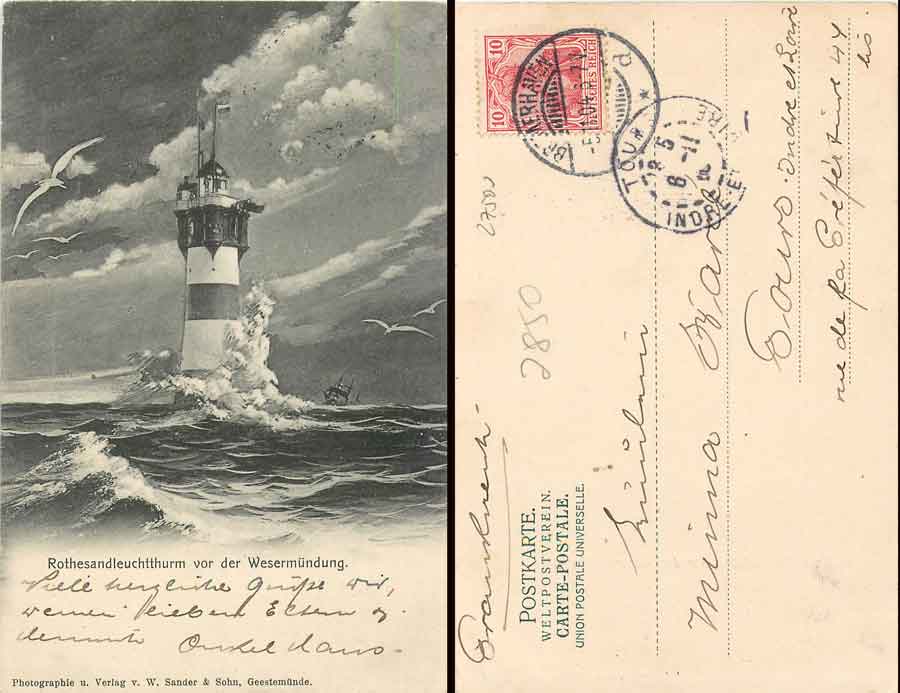 Rothesandleuchtthurm vor der Wesermündung.
Viele herzliche Grüße Dir,
Deinen lieben Eltern
Onkel Hans
Photographie u. Verlag v. W. Sander & Sohn, Geestemünde.
10
10
DEUTSCHES REICH
BREMERHAVEN
d
TOURS
INDRE-ET-LOIRE
27500
2850
Frankreich
POSTKARTE.
WELTPOSTVEREIN.
CARTE-POSTALE.
UNION POSTALE UNIVERSELLE.
Fräulein
Minna
Tours. Indre et Loire
rue de la Préfecture 44
bis